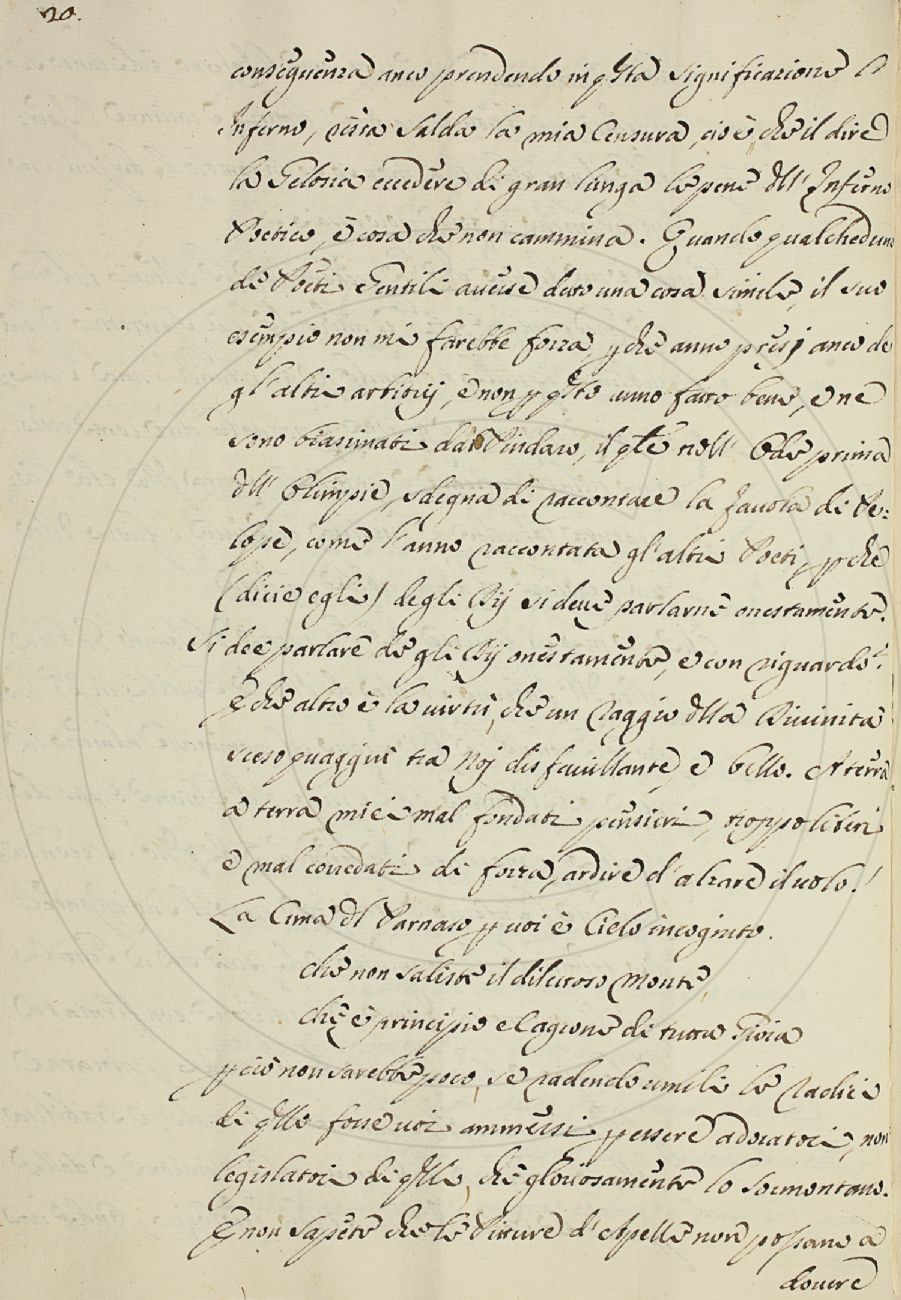 20.
conseguenza anco prendendo in qsta significazione l'
Inferno, resta salda la mia Censura, cio è, che il dire
la Gelosia eccedere di gran lunga le pene dll' Inferno
Poetico, è cosa che non cammina. Quando qualcheduno
de Poeti Gentili avesse detto una cosa simile, il suo
esempio non mi farebbe forza pche anno presi anco de
gl'altri arbitrij, e non p qsto anno fatto bene, e ne
sono biasimati dal Pindaro, il qle nell' Ode prima
dll' Olimpie, sdegna di raccontare la favola di Pe:
lope, come l'anno raccontata gl'altri Poeti, pche
(dicie egli) degli Dij si deve parlarne onestamente.
Si dee parlare de gli Dij onestamente, e con riguardo!
E che altro è la virtù, che un raggio dlla Divinità
sceso quaggiù tra Noj disfavillante, e bello. A terra
a terra miei mal fondati pensieri, troppo liberi
e mal corredati di forza, ardire d'alzare il volo!
La Cima dl Parnaso p voi è Cielo incognito.
che non saliste il dilettoso Monte,
ch'è principio e Cagione di tutta Gioia
pciò non sarebbe poco, se radendo umili le radici
di qllo foste voi ammessi p essere adoratori, non
legislatori di qlli, che gloriosamente lo sormontano.
E non sapete che le Pitture d'Apelle non possano a
dovere